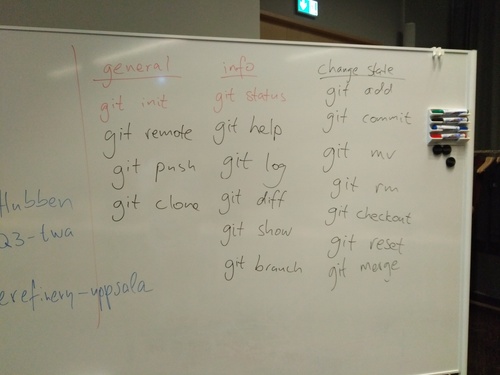 general
git init
git remote
git push
git clone
info
git status
git help
git log
git diff
git show
git branch
change state
git add
git commit
git mv
git rm
git checkout
git reset
git merge
Hubben
Q3-twa
erefinery-uppsala